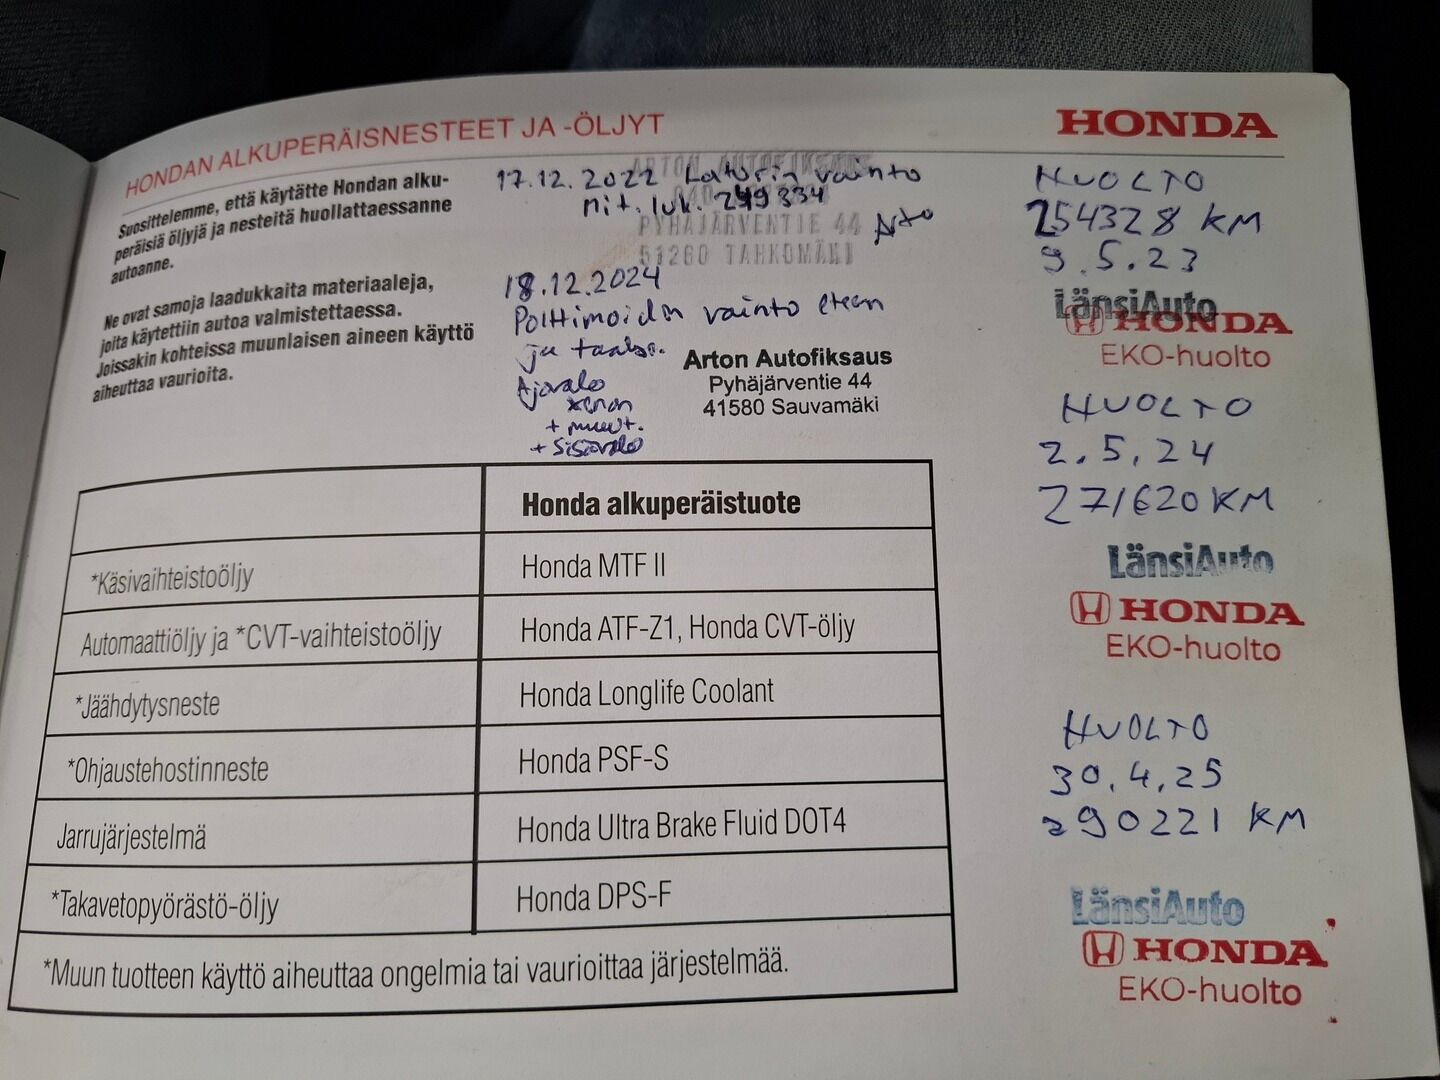 HONDAN ALKUPERÄISNESTEET JA -ÖLJYT
HONDA
Suosittelemme, että käytätte Hondan alku-
peräisiä öljyjä ja nesteitä huollattaessanne
autoanne.
Ne ovat samoja laadukkaita materiaaleja,
joita käytettiin autoa valmistettaessa.
Joissakin kohteissa muunlaisen aineen käyttö
aiheuttaa vaurioita.
ARTON AUTOFIKSAUS
PYHÄJÄRVENTIE 44
51260 TAHKOMÄKI
17.12.2022 Laturin vainto
mit. luk. 249334
Arto
18.12.2024
Polttimoidn vainto eteen
ja taakse.
Ajovalo
xenon
+ muut.
+ sisävalo
Arton Autofiksaus
Pyhäjärventie 44
41580 Sauvamäki
HUOLTO
254328 KM
9.5.23
LänsiAuto
HONDA
EKO-huolto
HUOLTO
2.5.24
271620 KM
LänsiAuto
HONDA
EKO-huolto
HUOLTO
30.4.25
290221 KM
LänsiAuto
HONDA
EKO-huolto
Honda alkuperäistuote
*Käsivaihteistoöljy Honda MTF II
Automaattiöljy ja *CVT-vaihteistoöljy Honda ATF-Z1, Honda CVT-öljy
*Jäähdytysneste Honda Longlife Coolant
*Ohjaustehostinneste Honda PSF-S
Jarrujärjestelmä Honda Ultra Brake Fluid DOT4
*Takavetopyörästö-öljy Honda DPS-F
*Muun tuotteen käyttö aiheuttaa ongelmia tai vaurioittaa järjestelmää.